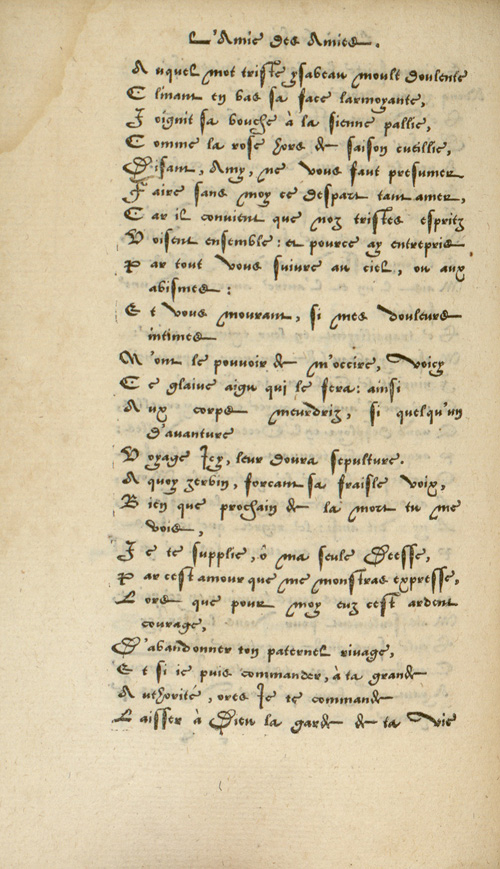 L'Amie des Amies.
Auquel mot triste ysabeau moult doulente
Clinant en bas sa face larmoyante,
Joignit sa bouche à la sienne pallie,
Comme la rose hors de saison cueillie,
Disant, Amy, ne vous faut presumer
Faire sans moy ce despart tant amer,
Car il convient que noz tristes espritz
Voisent ensemble: et pource ay entrepris
Par tout vous suivre au ciel, ou aux
abismes:
Et vous mourant, si mes douleurs
intimes
N'ont le pouvoir de m'occire, Voicy
Ce glaive aigu qui le fera: ainsi
Aux corps meurdriz, si quelqu'un
d'avanture
Voyage Icy, leur doura sepulture.
A quoy zerbin, forcant sa fraisle voix,
Bien que prochain de la mort tu me
vois,
Je te supplie, ô ma seule Deesse,
Par cest amour que me monstras expresse,
Lors que pour moy euz cest ardent
courage,
D'abandonner ton paternel rivage,
Et si je puis commander, à ta grande
Authorité, ores Je te commande
Laisser à Dieu la garde de ta Vie